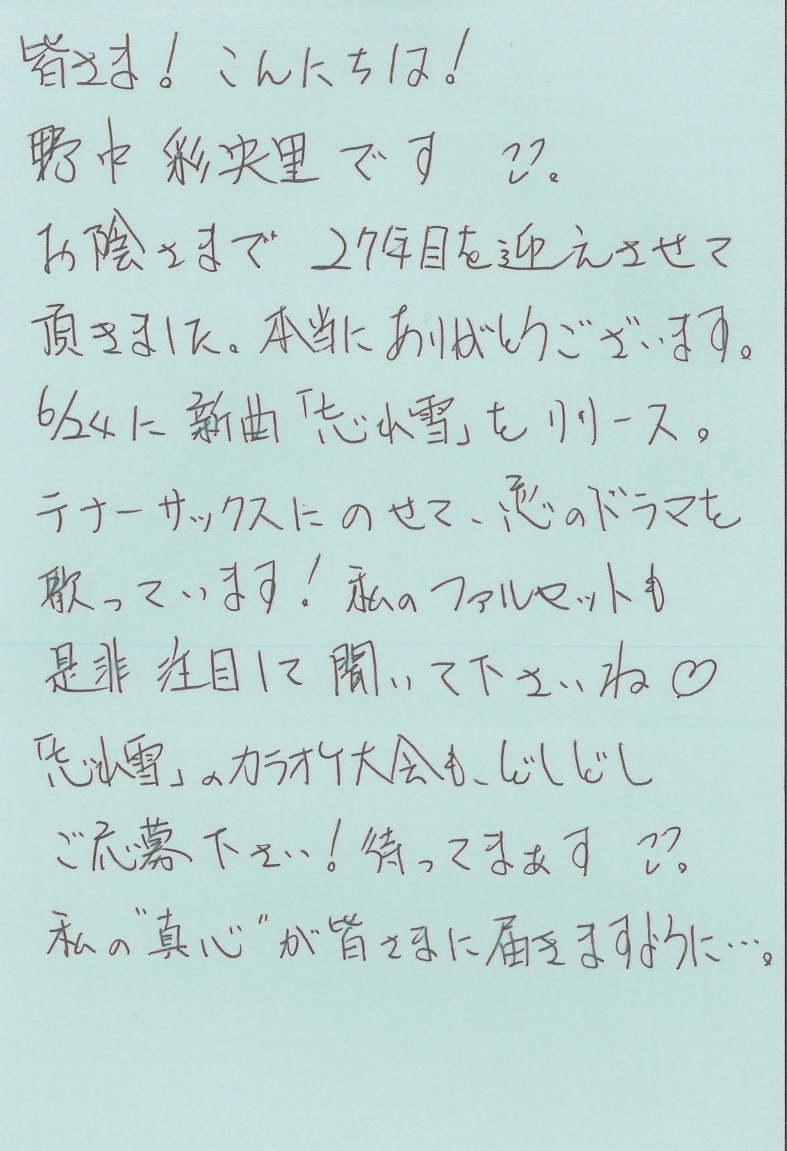 皆さま! こんにちは!
野中 彩央里です
お陰さまで 27年目を迎えさせて
頂きました。本当にありがとうございます。
6/24に 新曲「忘れ雪」を リリース。
テナーサックスに のせて、恋のドラマを
歌っています! 私の ファルセットも
是非 注目して 聞いて下さいね♡
「忘れ雪」のカラオケ大会も、どしどし
ご応募下さい! 待ってまぁす
私の"真心"が皆さまに届きますように…。